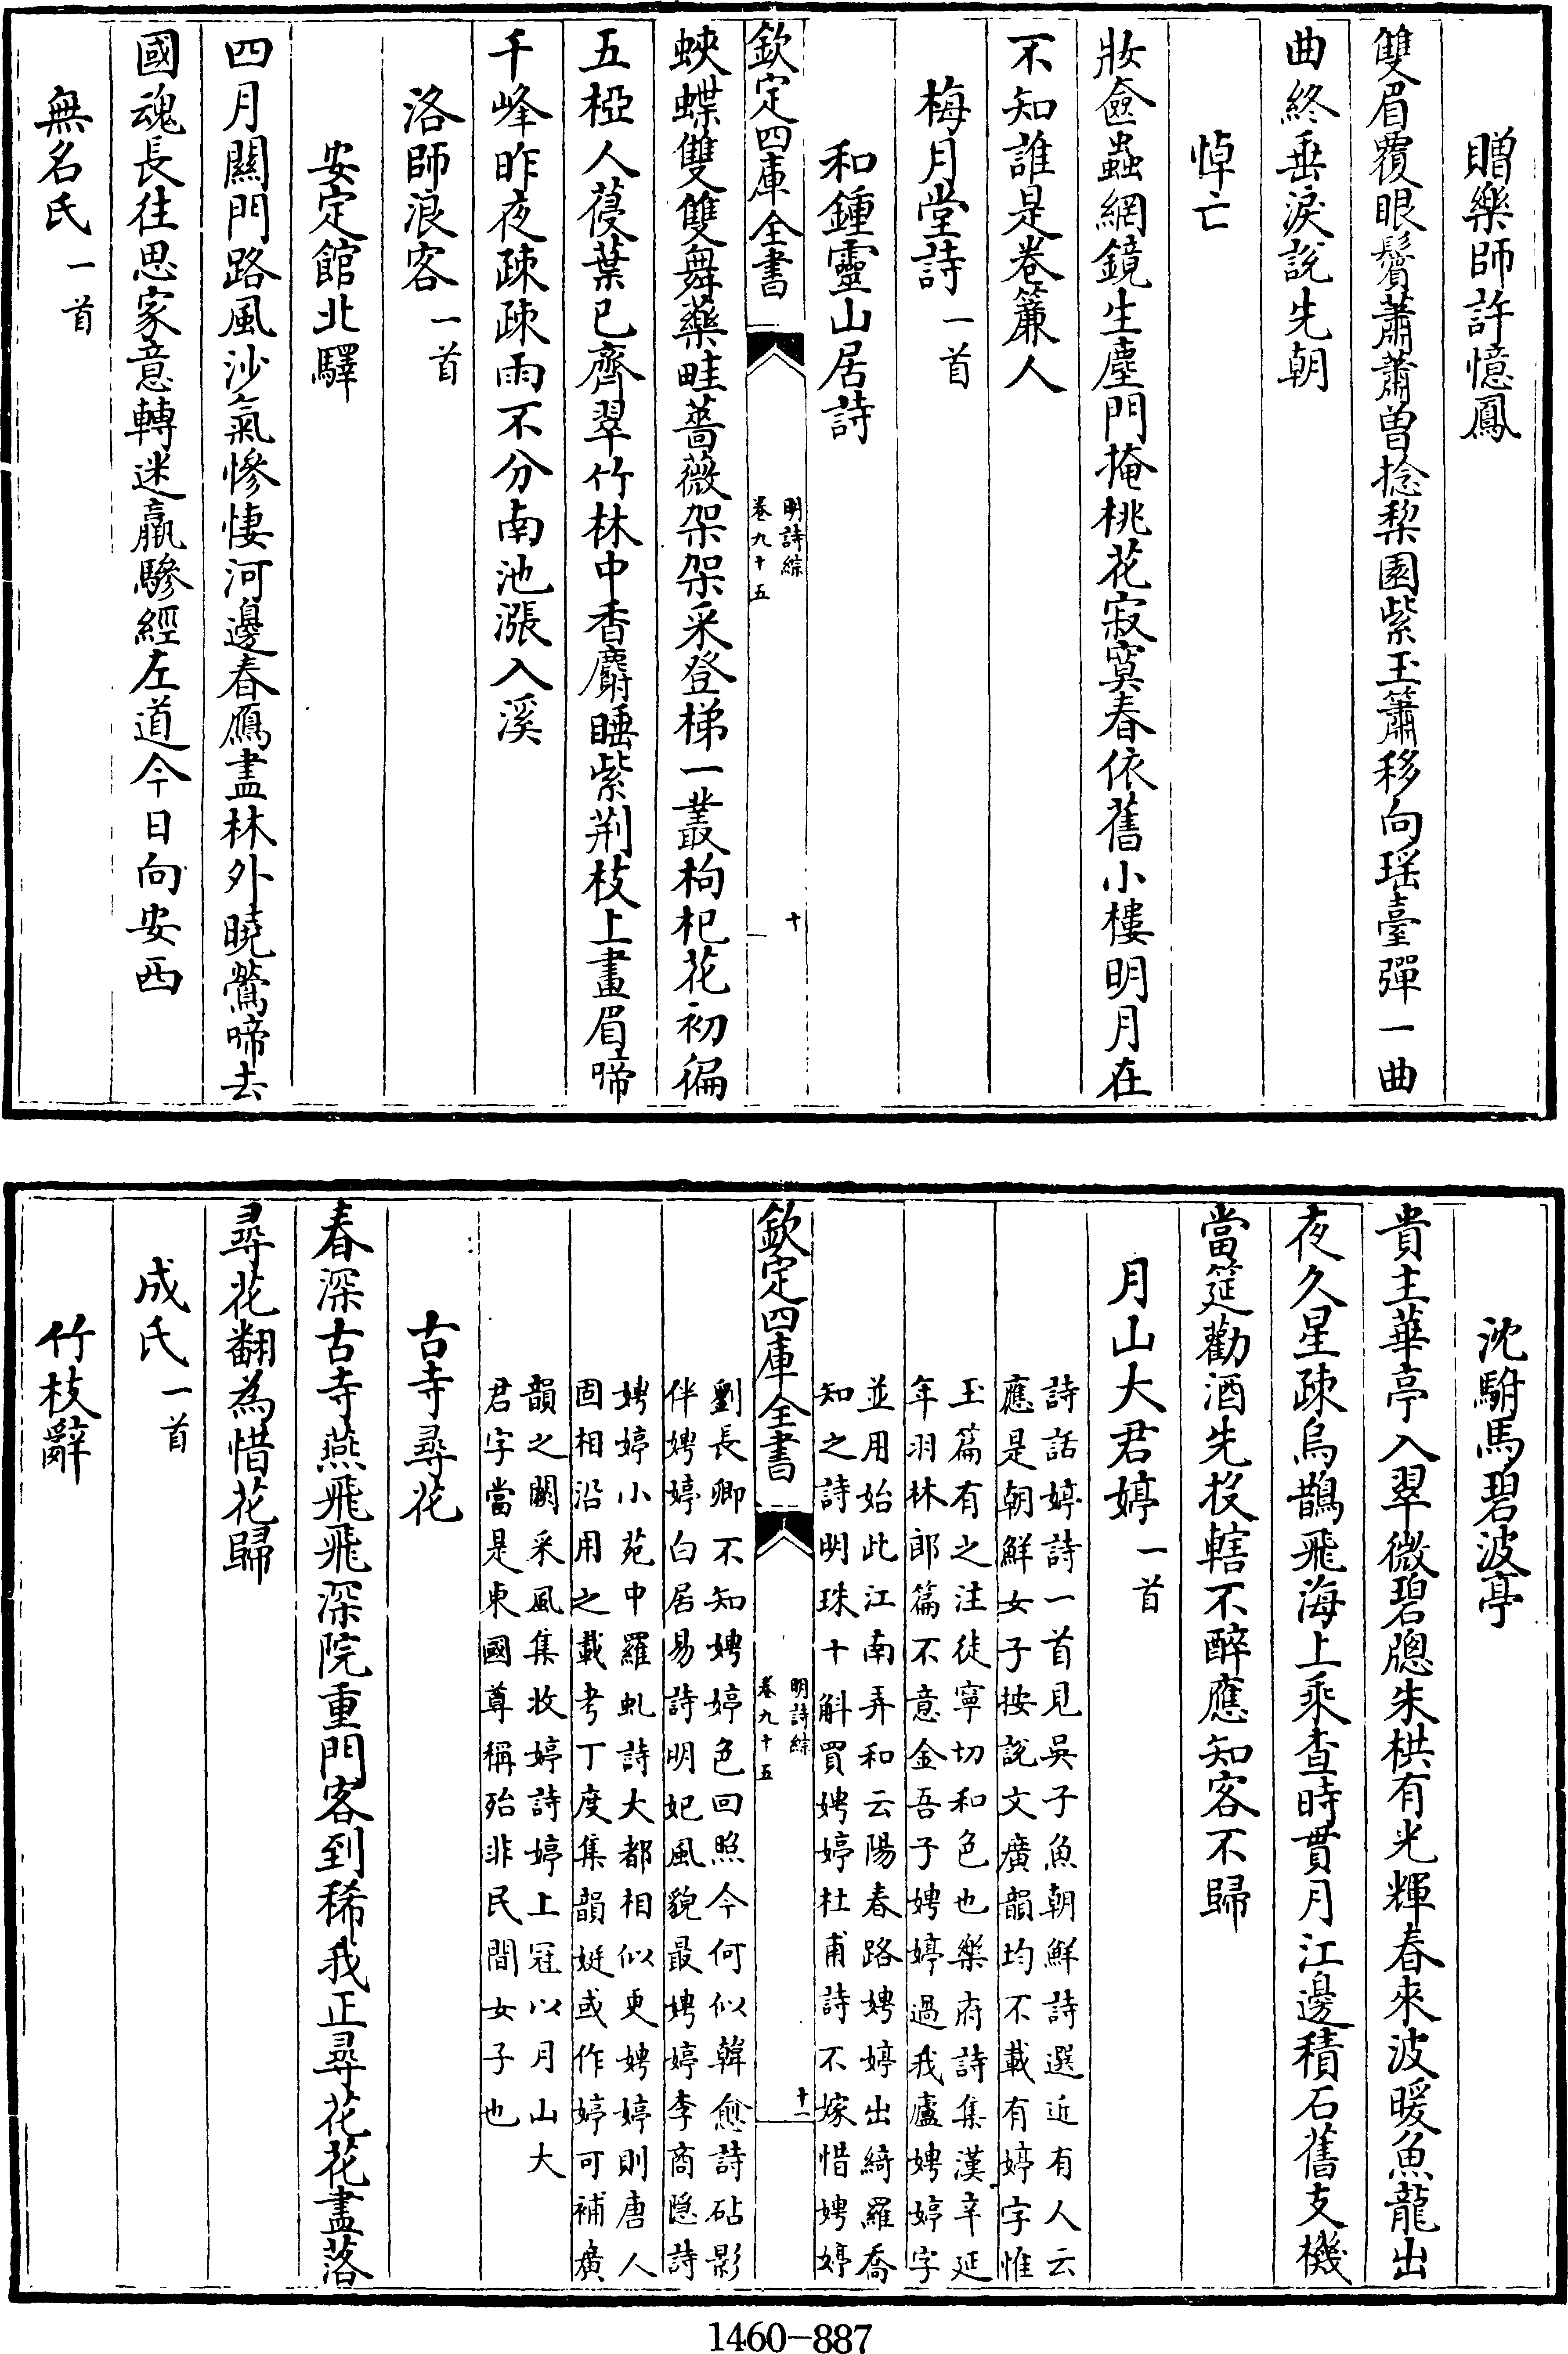 贈樂師許憶鳳
雙眉覆眼鬢蕭蕭曾捻梨園紫玉簫移向瑶臺彈一曲
曲終垂淚說先朝
悼亡
妝奩蟲網鏡生塵門掩桃花寂寞春依舊小樓明月在
不知誰是卷簾人
梅月堂詩一首
和鍾靈山居詩
欽定四庫全書
明詩綜
卷九十五
十
蛺蝶雙雙舞藥畦薔薇架架采登梯一叢枸杞花初徧
五椏人葠葉已齊翠竹林中香麝睡紫荆枝上畫眉啼
千峰昨夜疎疎雨不分南池漲入溪
洛師浪客一首
安定館北驛
四月關門路風沙氣慘悽河邊春鴈盡林外曉鶯啼去
國魂長往思家意轉迷羸驂經左道今日向安西
無名氏一首
沈駙馬碧波亭
貴主華亭入翠微碧牕朱栱有光輝春來波暖魚龍出
夜久星疎烏鵲飛海上乘查時貫月江邊積石舊支機
當筵勸酒先投轄不醉應知客不歸
月山大君婷一首
詩話婷詩一首見吳子魚朝鮮詩選近有人云
應是朝鮮女子按說文廣韻均不載有婷字惟
玉篇有之注徒寧切和色也樂府詩集漢辛延
年羽林郎篇不意金吾子娉婷過我廬娉婷字
並用始此江南弄和云陽春路娉婷出綺羅喬
知之詩明珠十斛買娉婷杜甫詩不嫁惜娉婷
欽定四庫全書
明詩綜
卷九十五
十一
劉長卿不知娉婷色回照今何似韓愈詩砧影
伴娉婷白居易詩明妃風貌最娉婷李商隱詩
娉婷小苑中羅虬詩大都相似更娉婷則唐人
固相沿用之載考丁度集韻娗或作婷可補廣
韻之闕采風集收婷詩婷上冠以月山大
君字當是東國尊稱殆非民間女子也
古寺尋花
春深古寺燕飛飛深院重門客到稀我正尋花花盡落
尋花翻為惜花歸
成氏一首
竹枝辭
1460-887